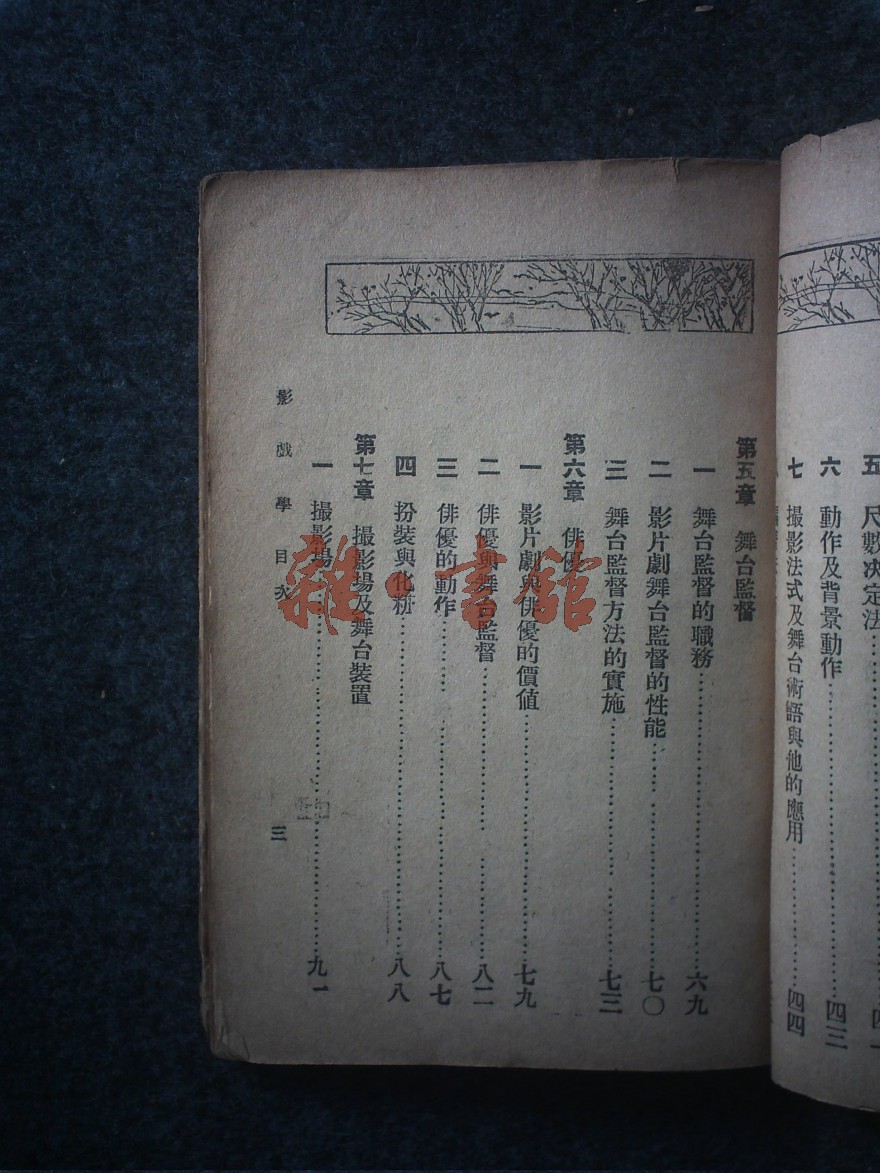 五 尺數决定法 四一
六 動作及背景動作 四三
七 撮影法式及舞台術語與他的應用 四四
第五章 舞台監督
一 舞台監督的職務 六九
二 影片劇舞台監督的性能 七〇
三 舞台監督方法的實施 七三
第六章 俳優
一 影片劇與俳優的價值 七九
二 俳優與舞台監督 八二
三 俳優的動作 八七
四 扮裝與化粧 八八
第七章 撮影場及舞台裝置
一 撮影場 九一
影戲學目次
三
雜·書館